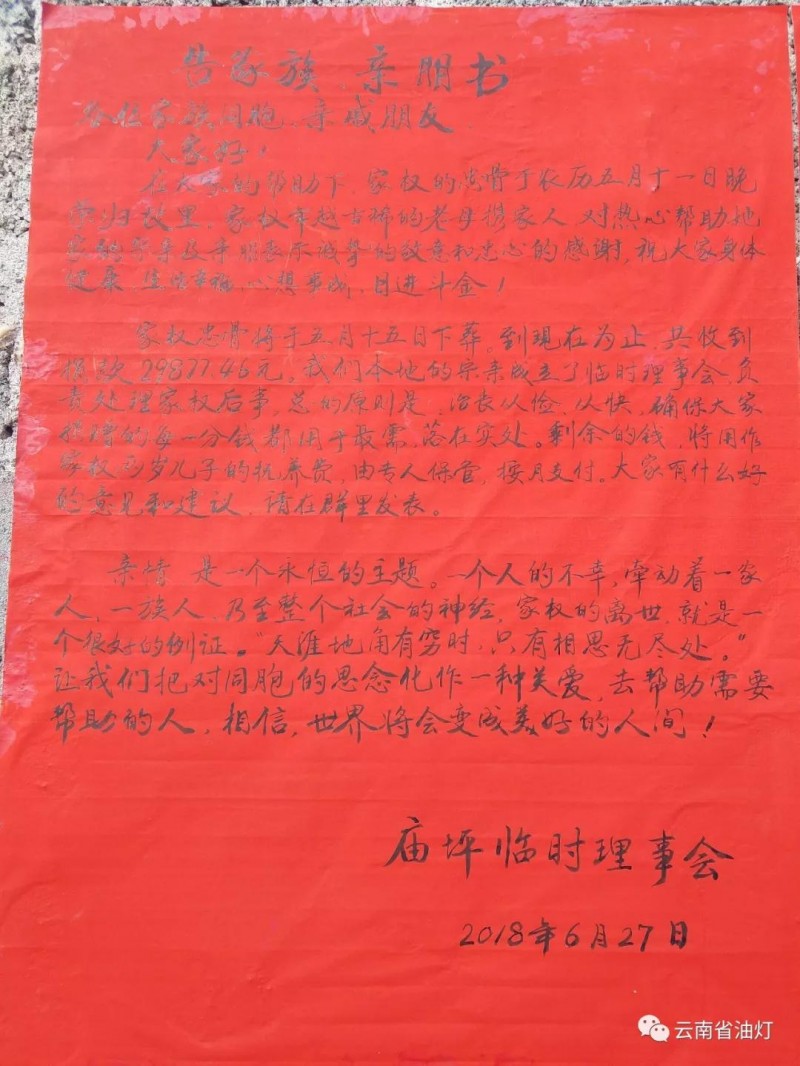 告家族、亲朋书
各位家族同胞、亲戚朋友
大家好！
在大家的帮助下，家权的忠骨于农历五月十一日晚
魂归故里，家权年越古稀的老母携家人，对热心帮助她
家的宗亲及亲朋表示诚挚的敬意和衷心的感谢，祝大家身体
健康，生活幸福，心想事成，日进斗金！
家权忠骨将于五月十五日下葬。到现在为止，共收到
捐款29877.46元，我们本地的宗亲成立了临时理事会，负
责处理家权后事，总的原则是，治丧从俭，从快，确保大家
捐赠的每一分钱都用于最需，落在实处。剩余的钱，将用作
家权 岁儿子的抚养费，由专人保管，按月支付。大家有什么好
的意见和建议，请在群里发表。
亲情，是一个永恒的主题。一个人的不幸，牵动着一家
人，一族人，乃至整个社会的神经，家权的离世，就是一
个很好的例证。“天涯地角有穷时，只有相思无尽处。”
让我们把对同胞的思念化作一种关爱，去帮助需要
帮助的人，相信，世界将会变成美好的人间！
庙坪临时理事会
2018年6月27日
云南省油灯